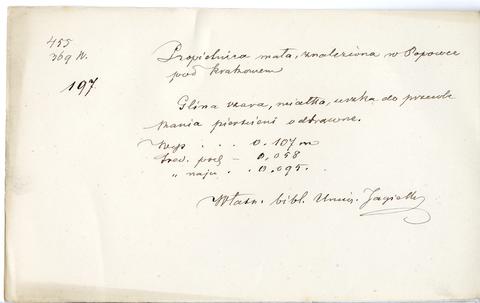 455
369 N.
197.
Popielnica mała, znaleziona w Popowce
pod Krakowem
Glina szara, miałka, uszka do przewle
kania pierścieni odtrawne.
Wys . . . 0.107 m
Śred. podst – 0,058
" najw . . 0.095.
Własn. bibl. Uniw. Jagiell.